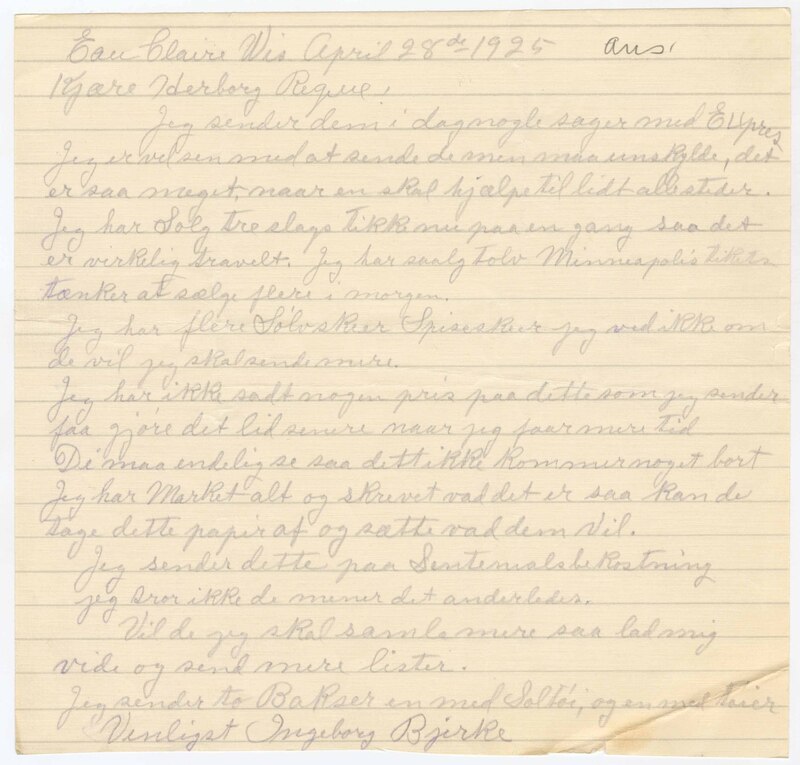 Eau Claire Wis April 28de 1925 ans.
Kjære Herborg Reque,
Jeg sender dem i dag nogle sager med Expres
Jeg er vel sen med at sende de men maa unskylde, det
er saa meget, naar en skal hjælpe til lidt allesteder.
Jeg har Solg tre slags tikke nu paa en gang saa det
er virkelig travelt. Jeg har saalg tolv Minneapolis tikets
tænker at sælge flere i morgen.
Jeg har flere Sølvskeer Spiseskeer jeg ved ikke om
de vil jeg skal sende mere.
Jeg har ikke sadt nogen pris paa dette som jeg sender
faa gjøre det lid senere naar jeg faar mere tid
De maa endelig se saa dett ikke kommer noget bort
Jeg har Market alt og skrevet vad det er saa kan de
tage dette papir af og sætte vad dem Vil.
Jeg sender dette paa Sentenialsbekostning
jeg tror ikke de mener det anderledes.
Vil de jeg skal samle mere saa lad mig
vide og send mere lister.
Jeg sender to Bakser en med Soltøi, og en med
Venligst Ingeborg Bjerke